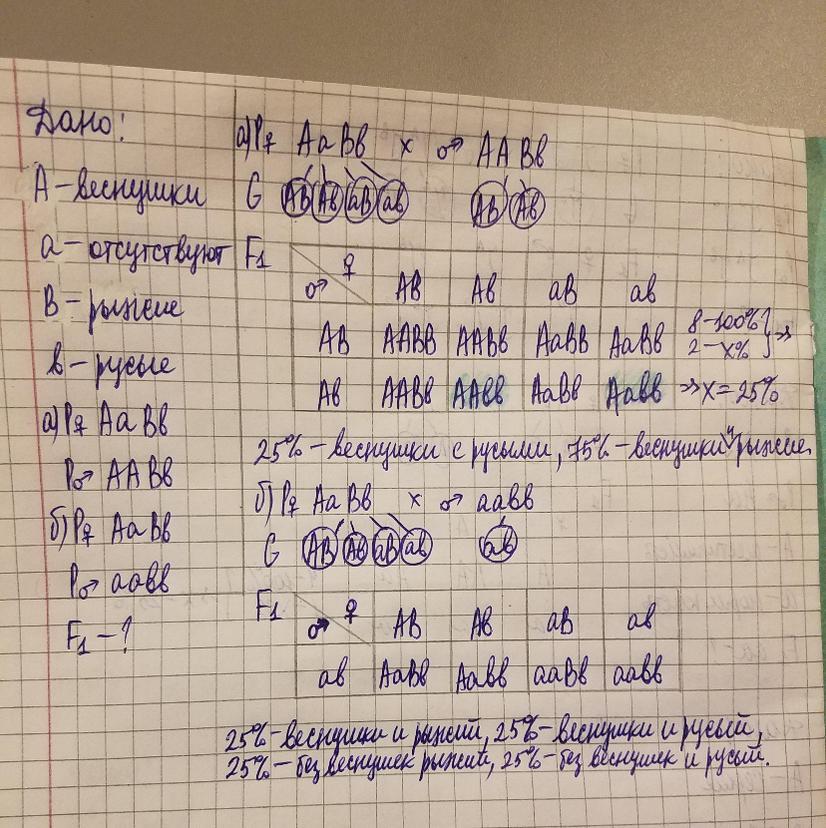 Дано:
А – веснушки
а – отсутствуют
В – рыжие
в – русые
а) Р♀ АаВв
Р♂ ААВв
б) Р♀ АаВв
Р♂ аавв
F₁ – ?
а) Р♀ АаВв х ♂ ААВв
G АВ Ав аВ ав АВ Ав
F₁ ♀
♂ АВ Ав аВ ав
АВ ААВВ ААВв АаВВ АаВв
Ав ААВв ААвв АаВв Аавв
8 – 100% } ⇒
2 – х%
⇒ х = 25%
25% – веснушки с русыми, 75% – веснушки и рыжие.
б) Р♀ АаВв х ♂ аавв
G АВ Ав аВ ав ав
F₁ ♀
♂ АВ Ав аВ ав
ав АаВв Аавв ааВв аавв
25% – веснушки и рыжий, 25% – веснушки и русый,
25% – без веснушек рыжий, 25% – без веснушек и русый.